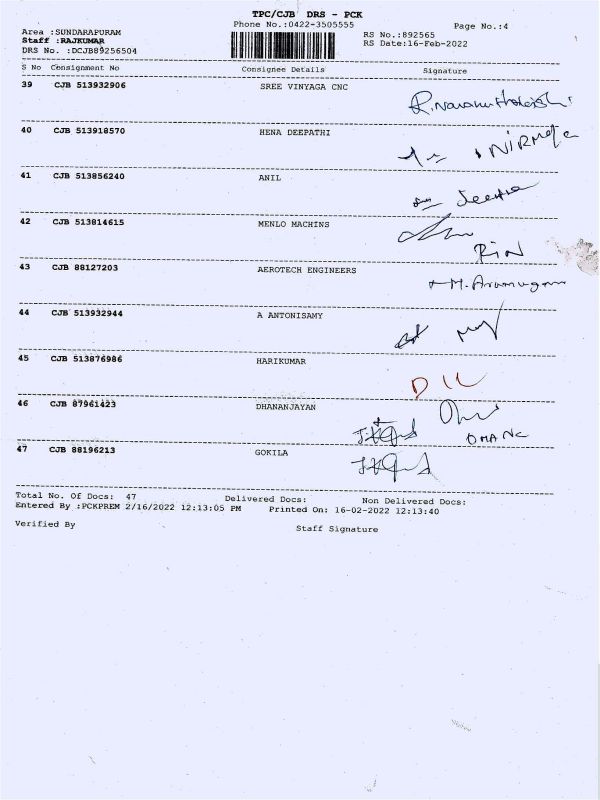 TPC/CJB DRS - PCK
Phone No.:0422-3505555
Page No.:4
Area :SUNDARAPURAM
RS No.:892565
Staff :RAJKUMAR
RS Date:16-Feb-2022
DRS No. :DCJB89256504
S No Consignment No Consignee Details Signature
39 CJB 513932906 SREE VINYAGA CNC
40 CJB 513918570 HENA DEEPATHI
NIRMALA
41 CJB 513856240 ANIL
Jeetha
42 CJB 513814615 MENLO MACHINS
43 CJB 88127203 AEROTECH ENGINEERS
M. Arumugam
44 CJB 513932944 A ANTONISAMY
45 CJB 513876986 HARIKUMAR
46 CJB 87961423 DHANANJAYAN
47 CJB 88196213 GOKILA
Total No. Of Docs: 47 Delivered Docs: Non Delivered Docs:
Entered By :PCKPREM 2/16/2022 12:13:05 PM Printed On: 16-02-2022 12:13:40
Verified By Staff Signature